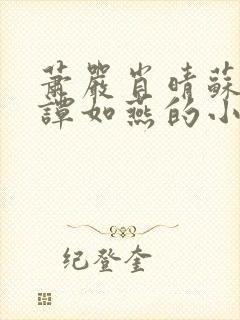 萧嚴肖晴蘇
譚如燕的小
纪登奎